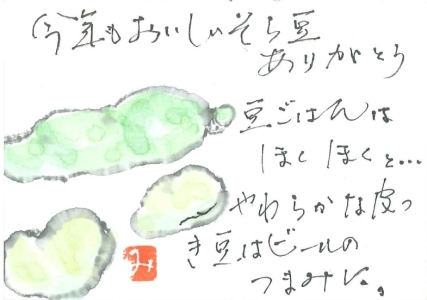 今年もおいしいそら豆
ありがとう
豆ごはんは
ほくほくと…
やわらかな皮つ
き豆はビールの
つまみに。
み